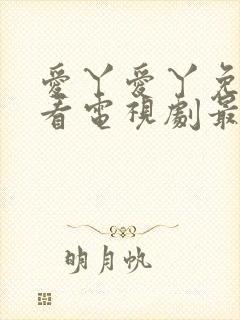 愛丫愛丫免
看電視劇最
明月帆